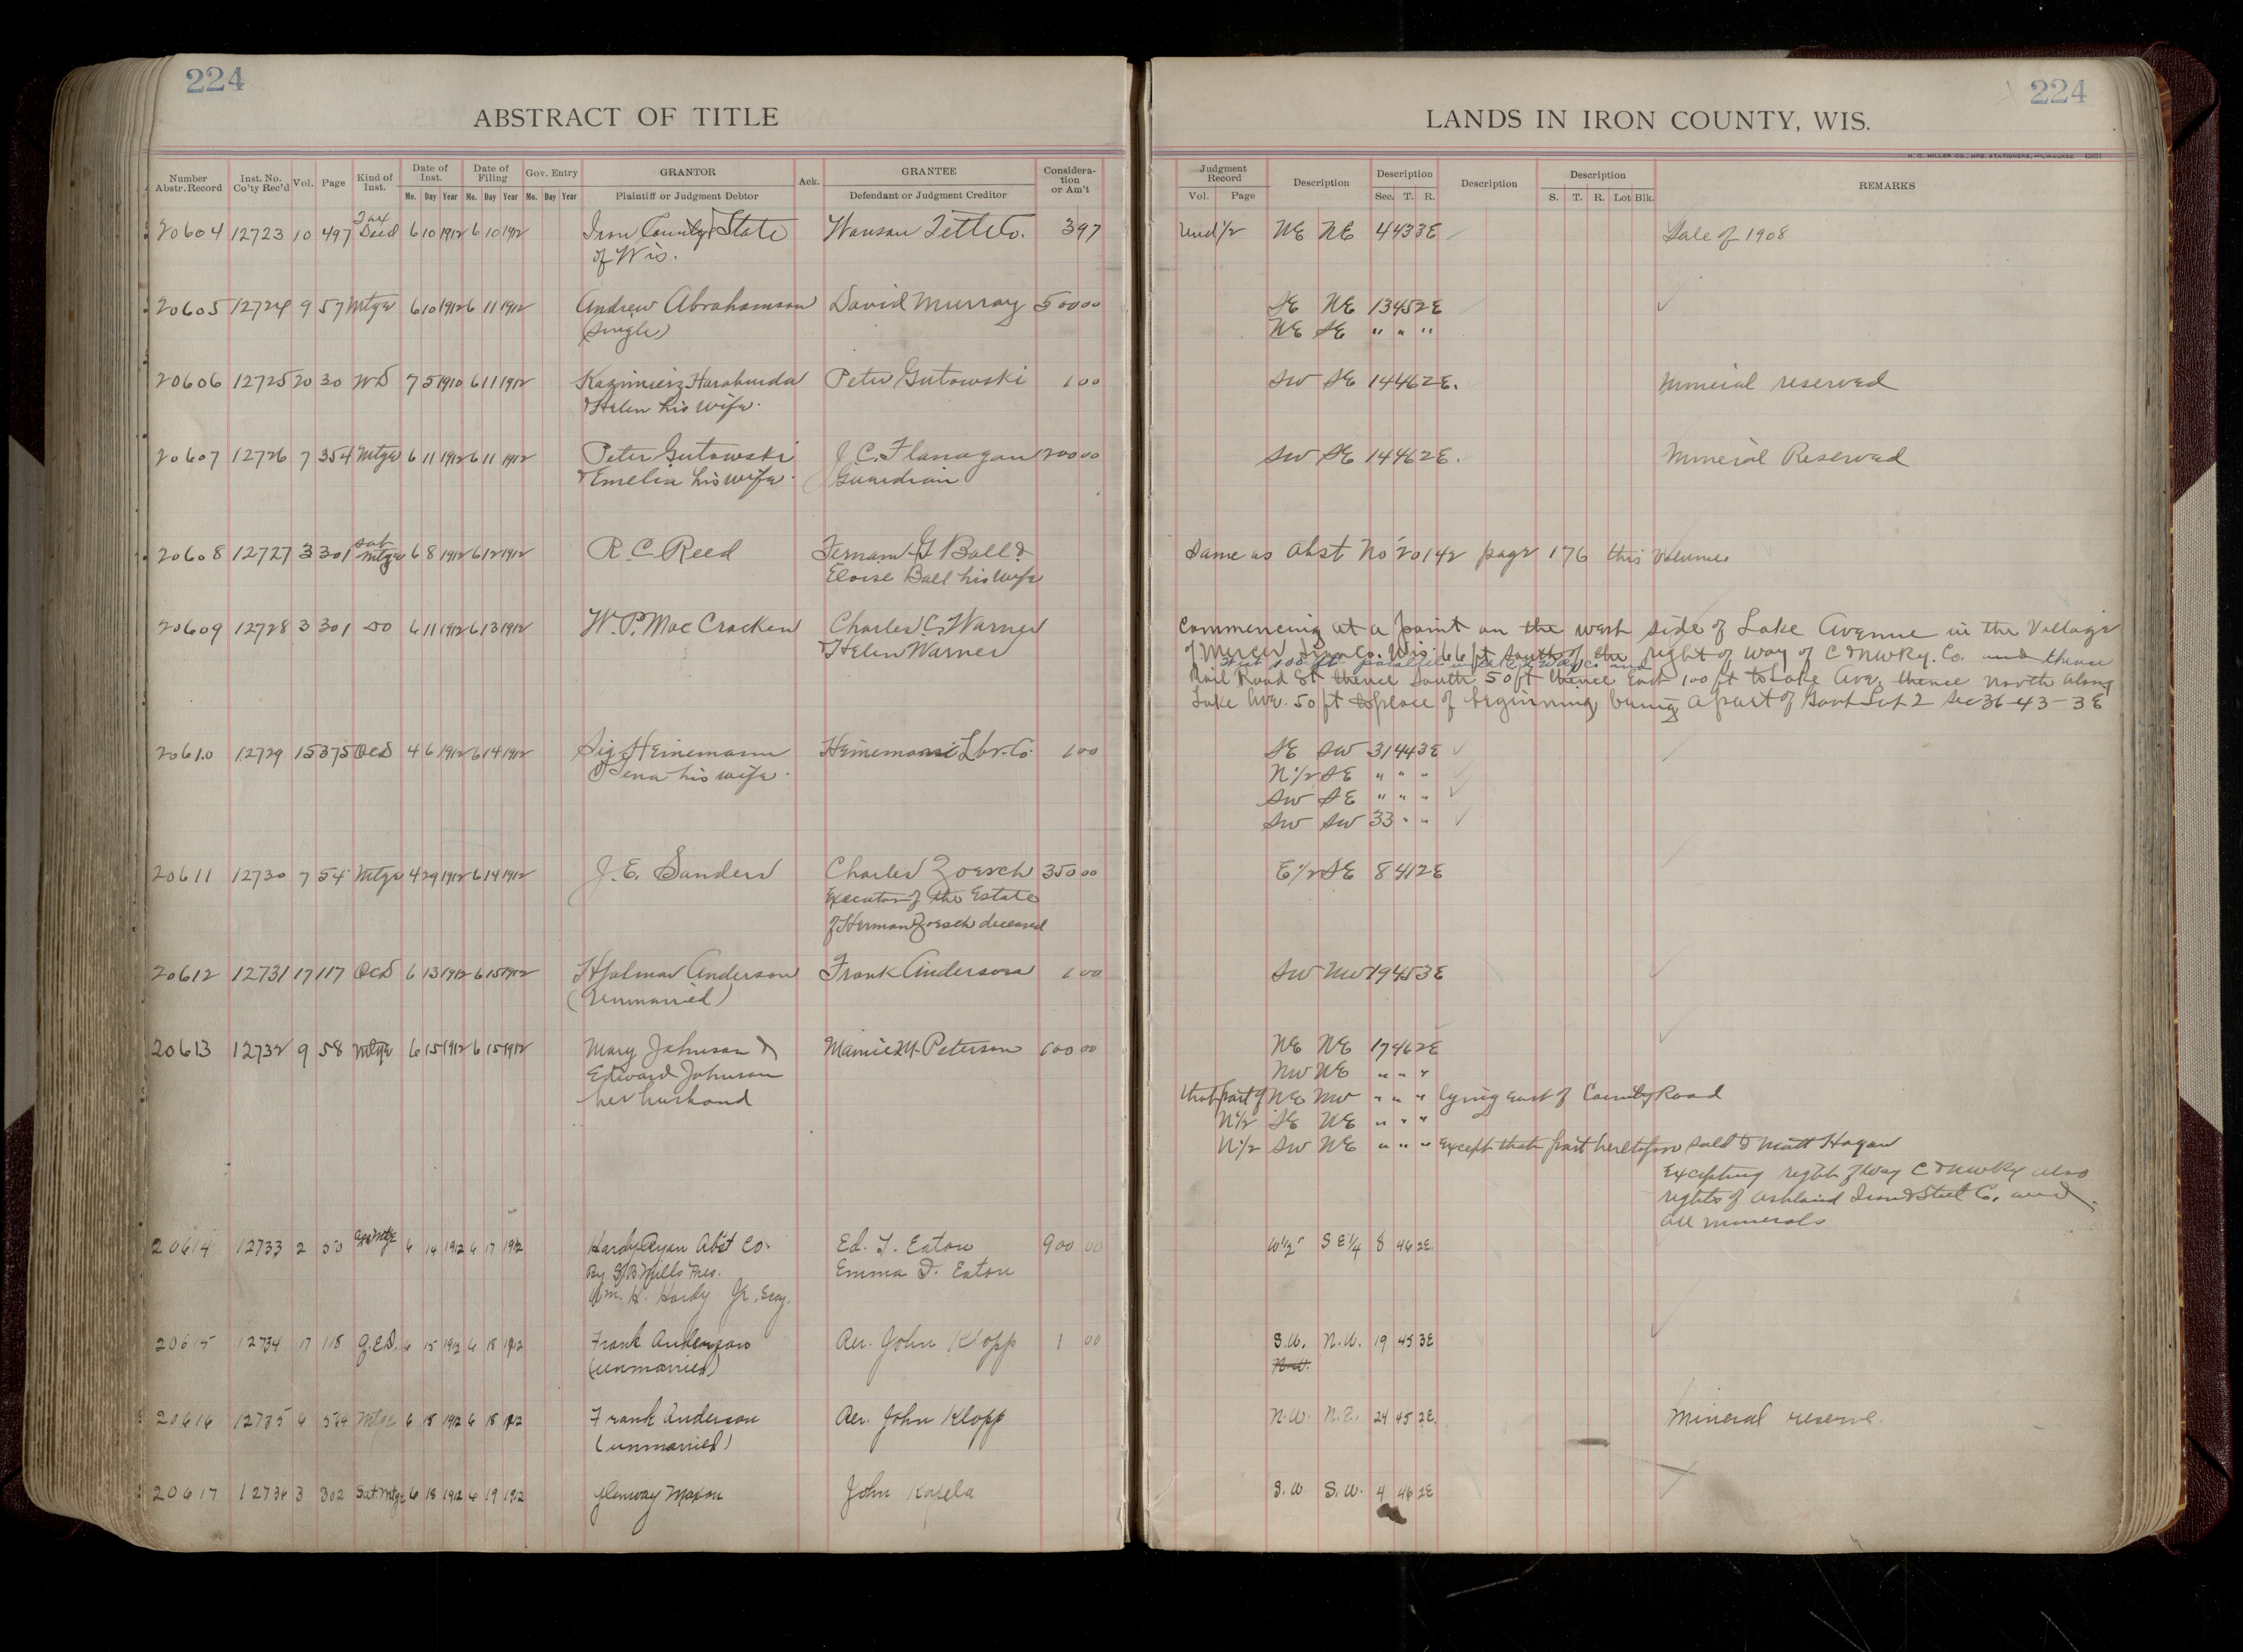 224
ABSTRACT OF TITLE
Number Abstr. Record | Inst. No. Co'ty Rec'd | Vol. | Page | Kind of Inst. | Date of Inst. Mo. Day Year | Date of Filing Mo. Day Year | Gov. Entry Mo. Day Year | GRANTOR Plaintiff or Judgment Debtor | Ack. | GRANTEE Defendant or Judgment Creditor | Considera-tion or Am't
20604 12723 10 497 Tax Deed 6 10 1912 6 10 1912 Iron County & State Wausau Title Co. 3 97
of Wis.
20605 12724 9 57 Mtge 6 10 1912 6 11 1912 Andrew Abrahamson David Murray 500 00
(single)
20606 12725 20 30 WD 7 5 1910 6 11 1912 Kazimierz Haraburda Peter Gutowski 1 00
& Helen his wife.
20607 12726 7 354 Mtge 6 11 1912 6 11 1912 Peter Gutowski J. C. Flanagan 200 00
& Emelia his wife. Guardian
20608 12727 3 301 Sat Mtge 6 8 1912 6 12 1912 R. C. Reed G Ball &
Eloise Ball his wife
20609 12728 3 301 Do 6 11 1912 6 13 1912 W. P. Mac Cracken Charles C. Warner
& Helen Warner
20610 12729 15 375 QCD 4 6 1912 6 14 1912 Sig Heinemann Heinemann Lbr. Co. 1 00
& Lena his wife.
20611 12730 7 54 Mtge 4 29 1912 6 14 1912 J. E. Sanders Charles Zoesch 350 00
Executor of the Estate
of Herman Zoesch deceased
20612 12731 17 117 QCD 6 13 1912 6 15 1912 Hjalmar Anderson Frank Anderson 1 00
(Unmarried)
20613 12732 9 58 Mtge 6 15 1912 6 15 1912 Mary Johnson & Mamie M. Peterson 600 00
Edward Johnson
her husband
20614 12733 2 Mtge 6 14 1912 6 17 1912 Hardy Ryan Abst Co. Ed. T. Eaton 900 00
By Pres. Emma D. Eaton
Wm. H. Hardy Jr. Secy.
20615 12734 17 118 Q.C.D. 6 15 1912 6 18 1912 Frank Anderson Rev. John Klopp 1 00
(unmarried)
20616 12735 6 Mtge 6 18 1912 6 18 1912 Frank Anderson Rev. John Klopp
(unmarried)
20617 12736 3 302 Sat Mtge 6 18 1912 6 19 1912 Glenway Maxon John Kasela
224
LANDS IN IRON COUNTY, WIS.
H. C. MILLER CO., MFG. STATIONERS, MILWAUKEE
Judgment Record Vol. Page | Description | Description Sec. T. R. | Description | Description S. T. R. Lot Blk. | REMARKS
Und 1/2 NE NE 4 43 3E Sale of 1908
SE NE 13 45 2E
NE SE " " "
SW SE 14 46 2E. Mineral reserved
SW SE 14 46 2E. Mineral Reserved
Same as Abst No 20142 page 176 this Volume
Commencing at a point on the west side of Lake Avenue in the Village
of Mercer Iron Co. Wis. 66 ft south of the right of way of C & NW Ry. Co. and thence
West 100 ft parallel and
Rail Road St thence South 50 ft thence East 100 ft to Lake Ave, thence North along
Lake Ave. 50 ft to place of beginning being a part of Govt Lot 2 Sec 36-43-3E
SE SW 31 44 3E
N 1/2 SE " " "
SW SE " " "
SW SW 33 " "
E 1/2 SE 8 41 2E
SW NW 19 45 3E
NE NE 17 46 2E
NW NE " " "
that part of NE NW " " " lying east of County Road
N 1/2 SE NE " " "
N 1/2 SW NE " " " except that part heretofore sold to Matt Hogan
Excepting right of way C & NW Ry also
rights of Ashland Iron & Steel Co. and
all minerals
W 1/2 SE 1/4 8 46 2E.
S.W. N.W. 19 45 3E
N.W.
N.W. N.E. 24 45 2E. Mineral reserve.
S.W. S.W. 4 46 2E